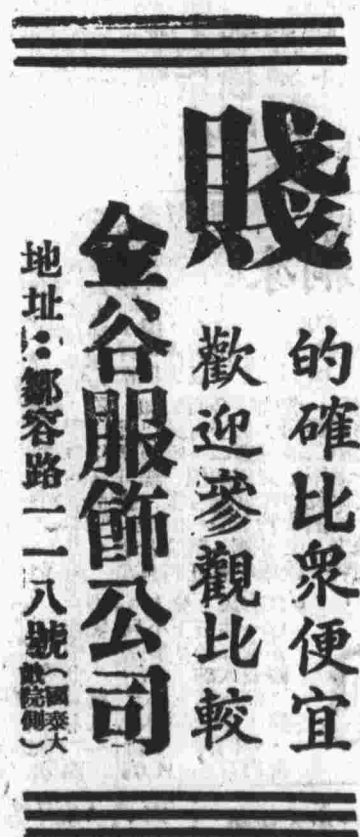 賤
的確比眾便宜
歡迎參觀比較
金谷服飾公司
地址：鄒容路一一八號（國泰大戲院側）